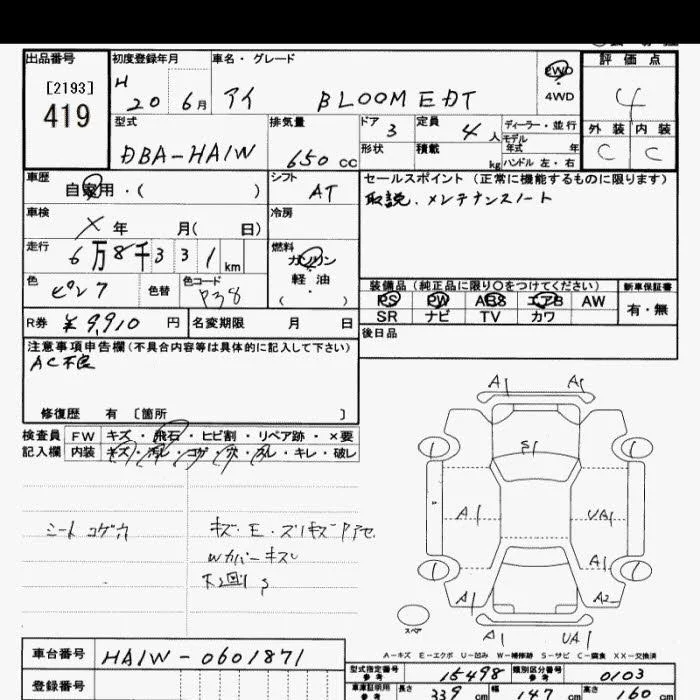 出品番号
[2193]
419
初度登録年月
H 20 6月
車名・グレード
アイ BLOOM EDT
2WD
4WD
評価点
4
外装 内装
C C
型式
DBA-HA1W
排気量
650 cc
ドア 3
形状
定員 4 人
積載 kg
ディーラー・並行
モデル年式 年式
ハンドル 左・右
車歴
自家用・( )
シフト
AT
セールスポイント(正常に機能するものに限ります)
取説.メンテナンスノート
車検
× 年 月( 日)
冷房
走行
6万8千331 km
燃料
ガソリン
軽油
( )
色
ピンク
色替
色コード
P38
装備品(純正品に限り○をつけてください)
PS PW ABS エアB AW
SR ナビ TV カワ
新車保証書
有・無
R券 ¥9,910 円
名変期限 月 日
後日品
注意事項申告欄(不具合内容等は具体的に記入して下さい)
AC不良
修復歴 有 〔箇所 〕
検査員 FW キズ・飛石・ヒビ割・リペア跡・×要
記入欄 内装 キズ・汚レ・コゲ・穴・スレ・キレ・破レ
シートコゲ穴
キズ・E・スリキズ
Wカバーキズ
下回りS
A1 A1
S1
A1 UA1
A1
A1 A2
A1 UA1
スペア
A-キズ E-エクボ U-凹み W-補修跡 S-サビ C-腐食 XX-交換済
車台番号
HA1W-0601871
登録番号
型式指定番号
参考
15498
類別区分番号
参考
0103
車庫証明用
参考
長さ 339 cm 幅 147 cm 高さ 160 cm